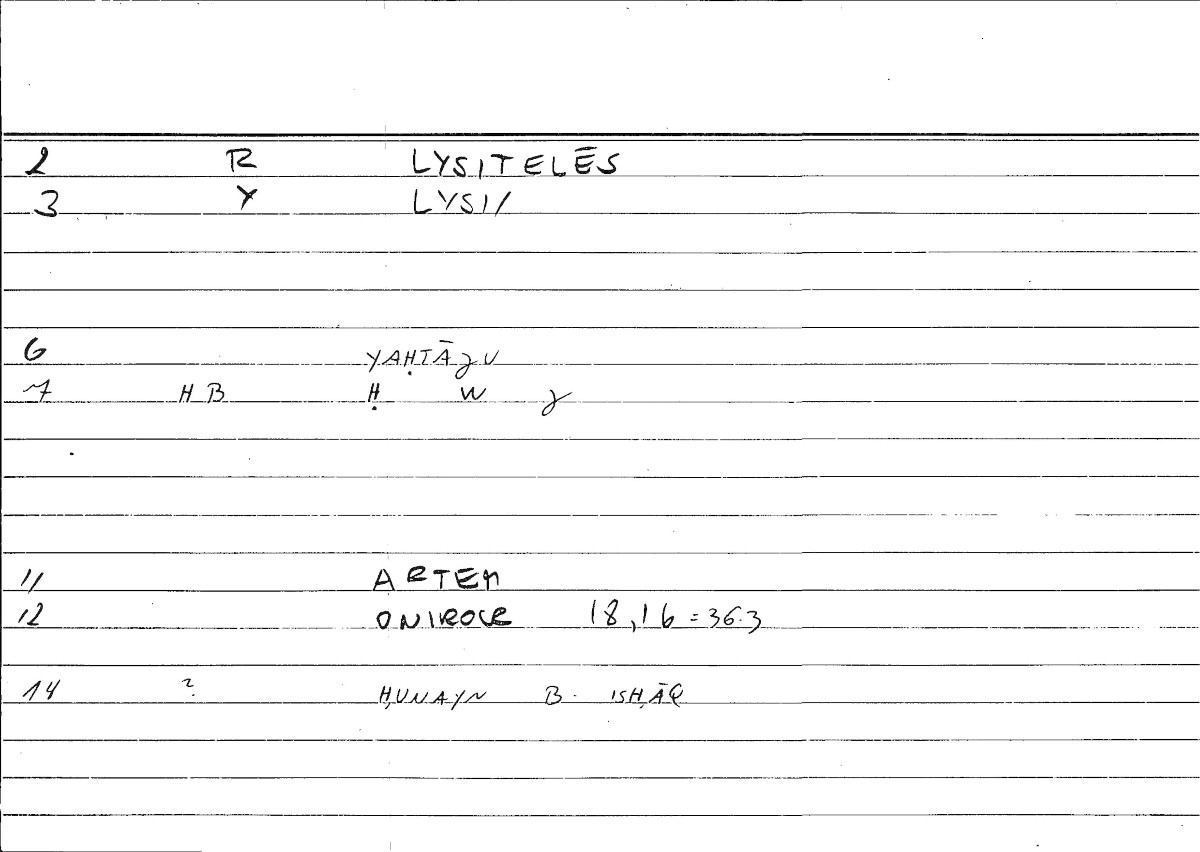 2 R LYSITELĒS
3 Y LYSI/
6 YAḤTĀJU
7 HB Ḥ W J
11 ARTEM
12 ONIROCR 18,16 = 36.3
14 ? ḤUNAYN B. ISḤĀQ